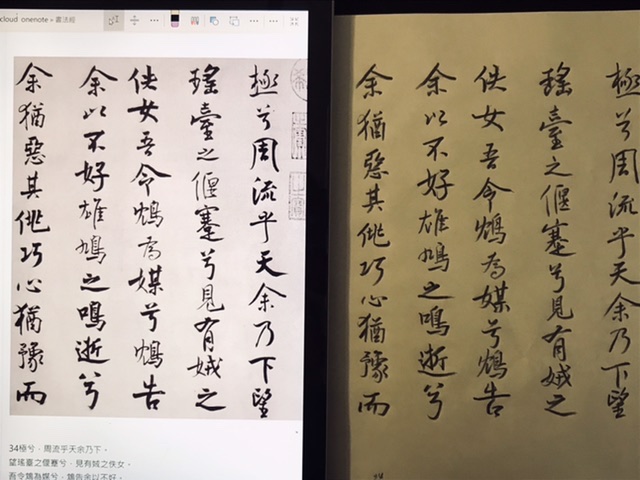 cloud onenote »
極兮周流乎天余乃下望
瑤臺之偃蹇兮見有娀之
佚女吾令鴆為媒兮鴆告
余以不好雄鳩之鳴逝兮
余猶惡其佻巧心猶豫而
34極兮，周流乎天余乃下。
望瑤臺之偃蹇兮，見有娀之佚女。
吾令鴆為媒兮，鴆告余以不好。
極兮周流乎天余乃下望
瑤臺之偃蹇兮見有娀之
佚女吾令鴆為媒兮鴆告
余以不好雄鳩之鳴逝兮
余猶惡其佻巧心猶豫而